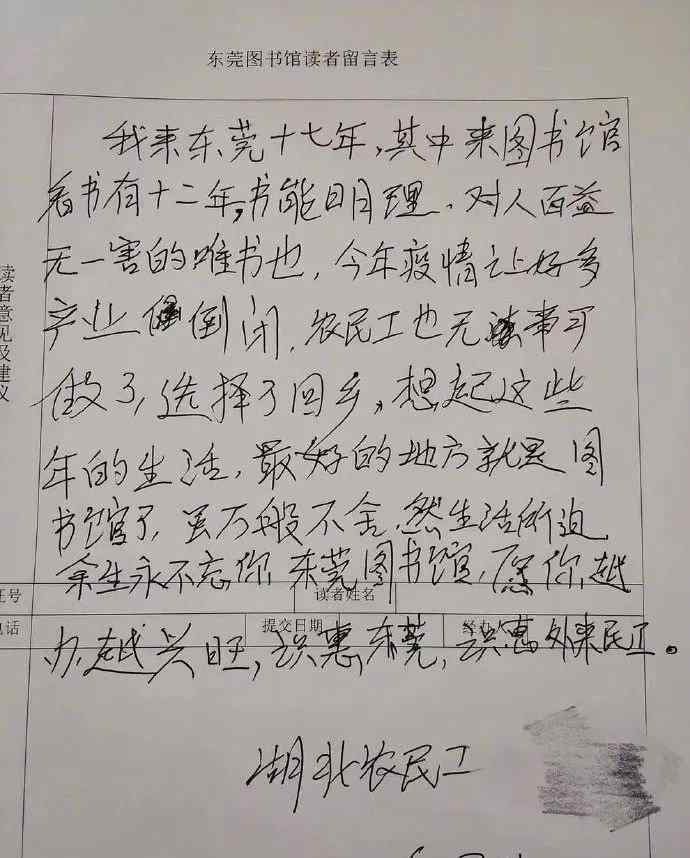 东莞图书馆读者留言表
我来东莞十七年,其中来图书馆
看书有十二年,书能明理,对人百益
无一害的唯书也,今年疫情让好多
产业倒闭,农民工也无事可
做了,选择了回乡,想起这些
年的生活,最好的地方就是图
书馆了,虽万般不舍,然生活所迫
余生永不忘你,东莞图书馆,愿你越
办越兴旺,识惠东莞,识惠外来民工。
湖北农民工
读者意见及建议
证号
读者姓名
电话
提交日期
经办人